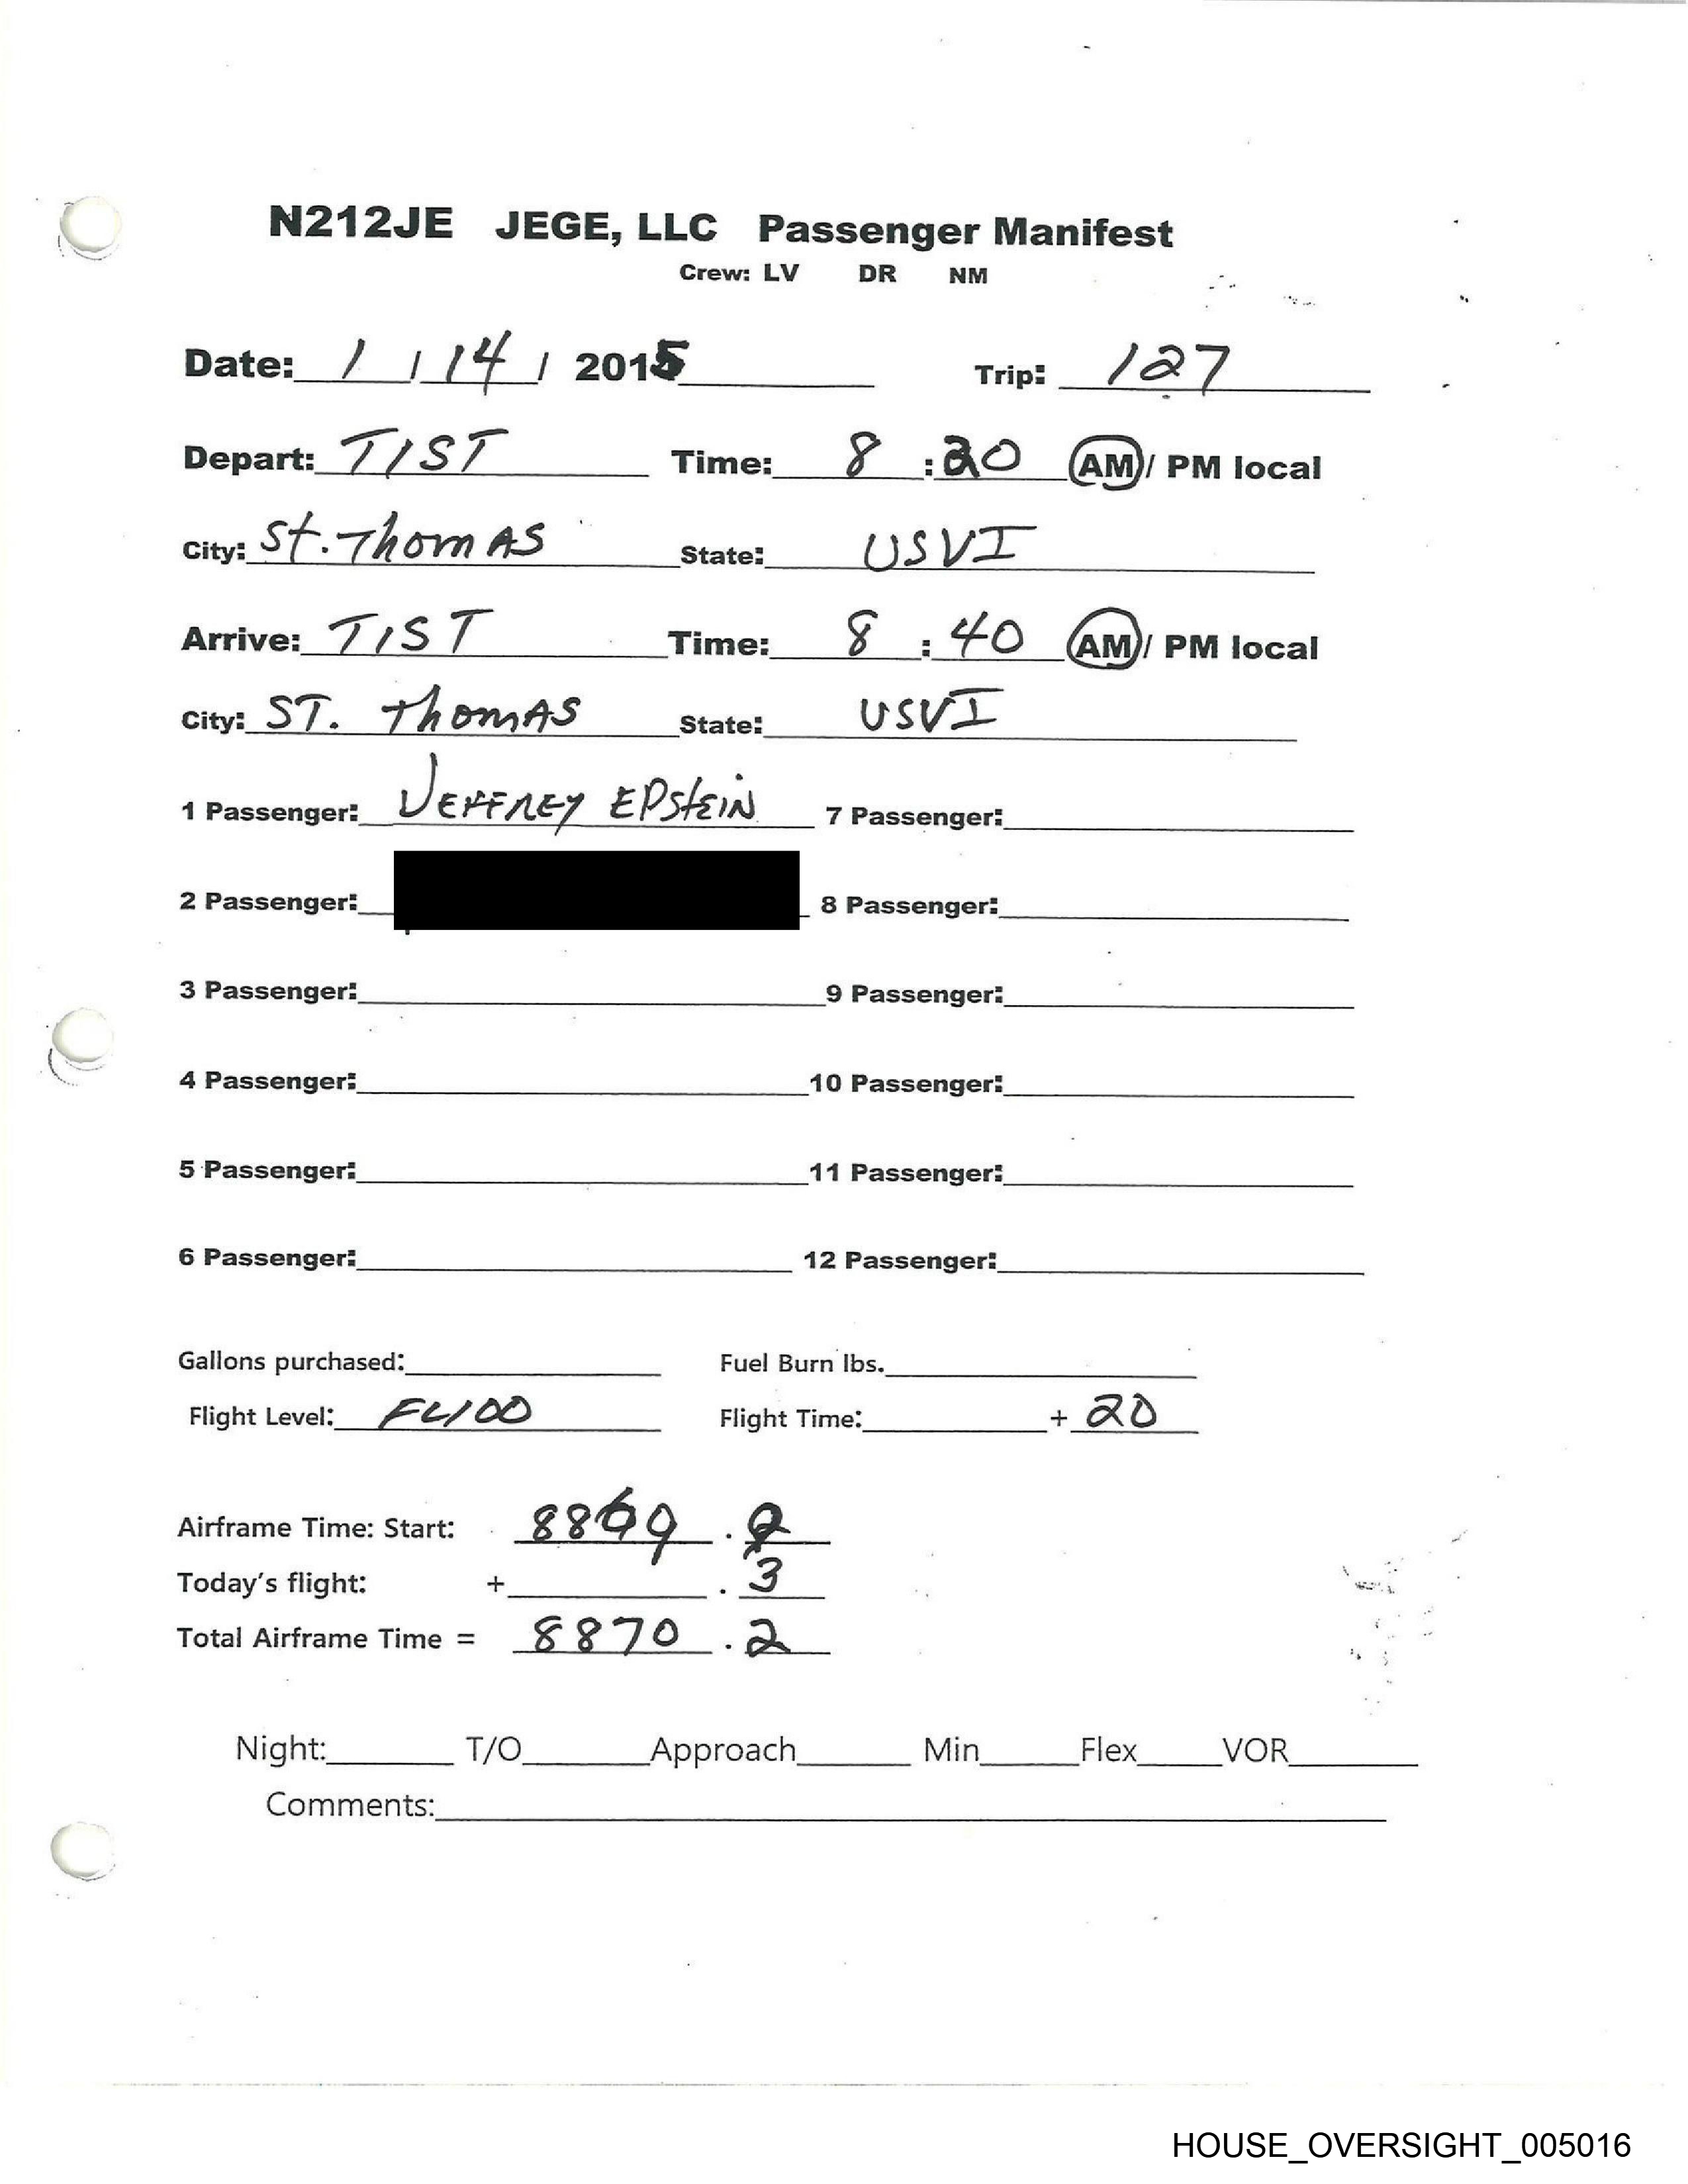 N212JE JEGE, LLC Passenger Manifest
Crew: LV DR NM
Date: 1 / 14 / 2015 Trip: 127
Depart: TIST Time: 8 : 20 AM / PM local
City: St. Thomas State: USVI
Arrive: TIST Time: 8 : 40 AM / PM local
City: ST. Thomas State: USVI
1 Passenger: Jeffrey Epstein 7 Passenger:
2 Passenger: 8 Passenger:
3 Passenger: 9 Passenger:
4 Passenger: 10 Passenger:
5 Passenger: 11 Passenger:
6 Passenger: 12 Passenger:
Gallons purchased: Fuel Burn lbs.
Flight Level: FL100 Flight Time: + 20
Airframe Time: Start: 8869 .
Today's flight: + . 3
Total Airframe Time = 8870 . 2
Night: T/O Approach Min Flex VOR
Comments:
HOUSE_OVERSIGHT_005016